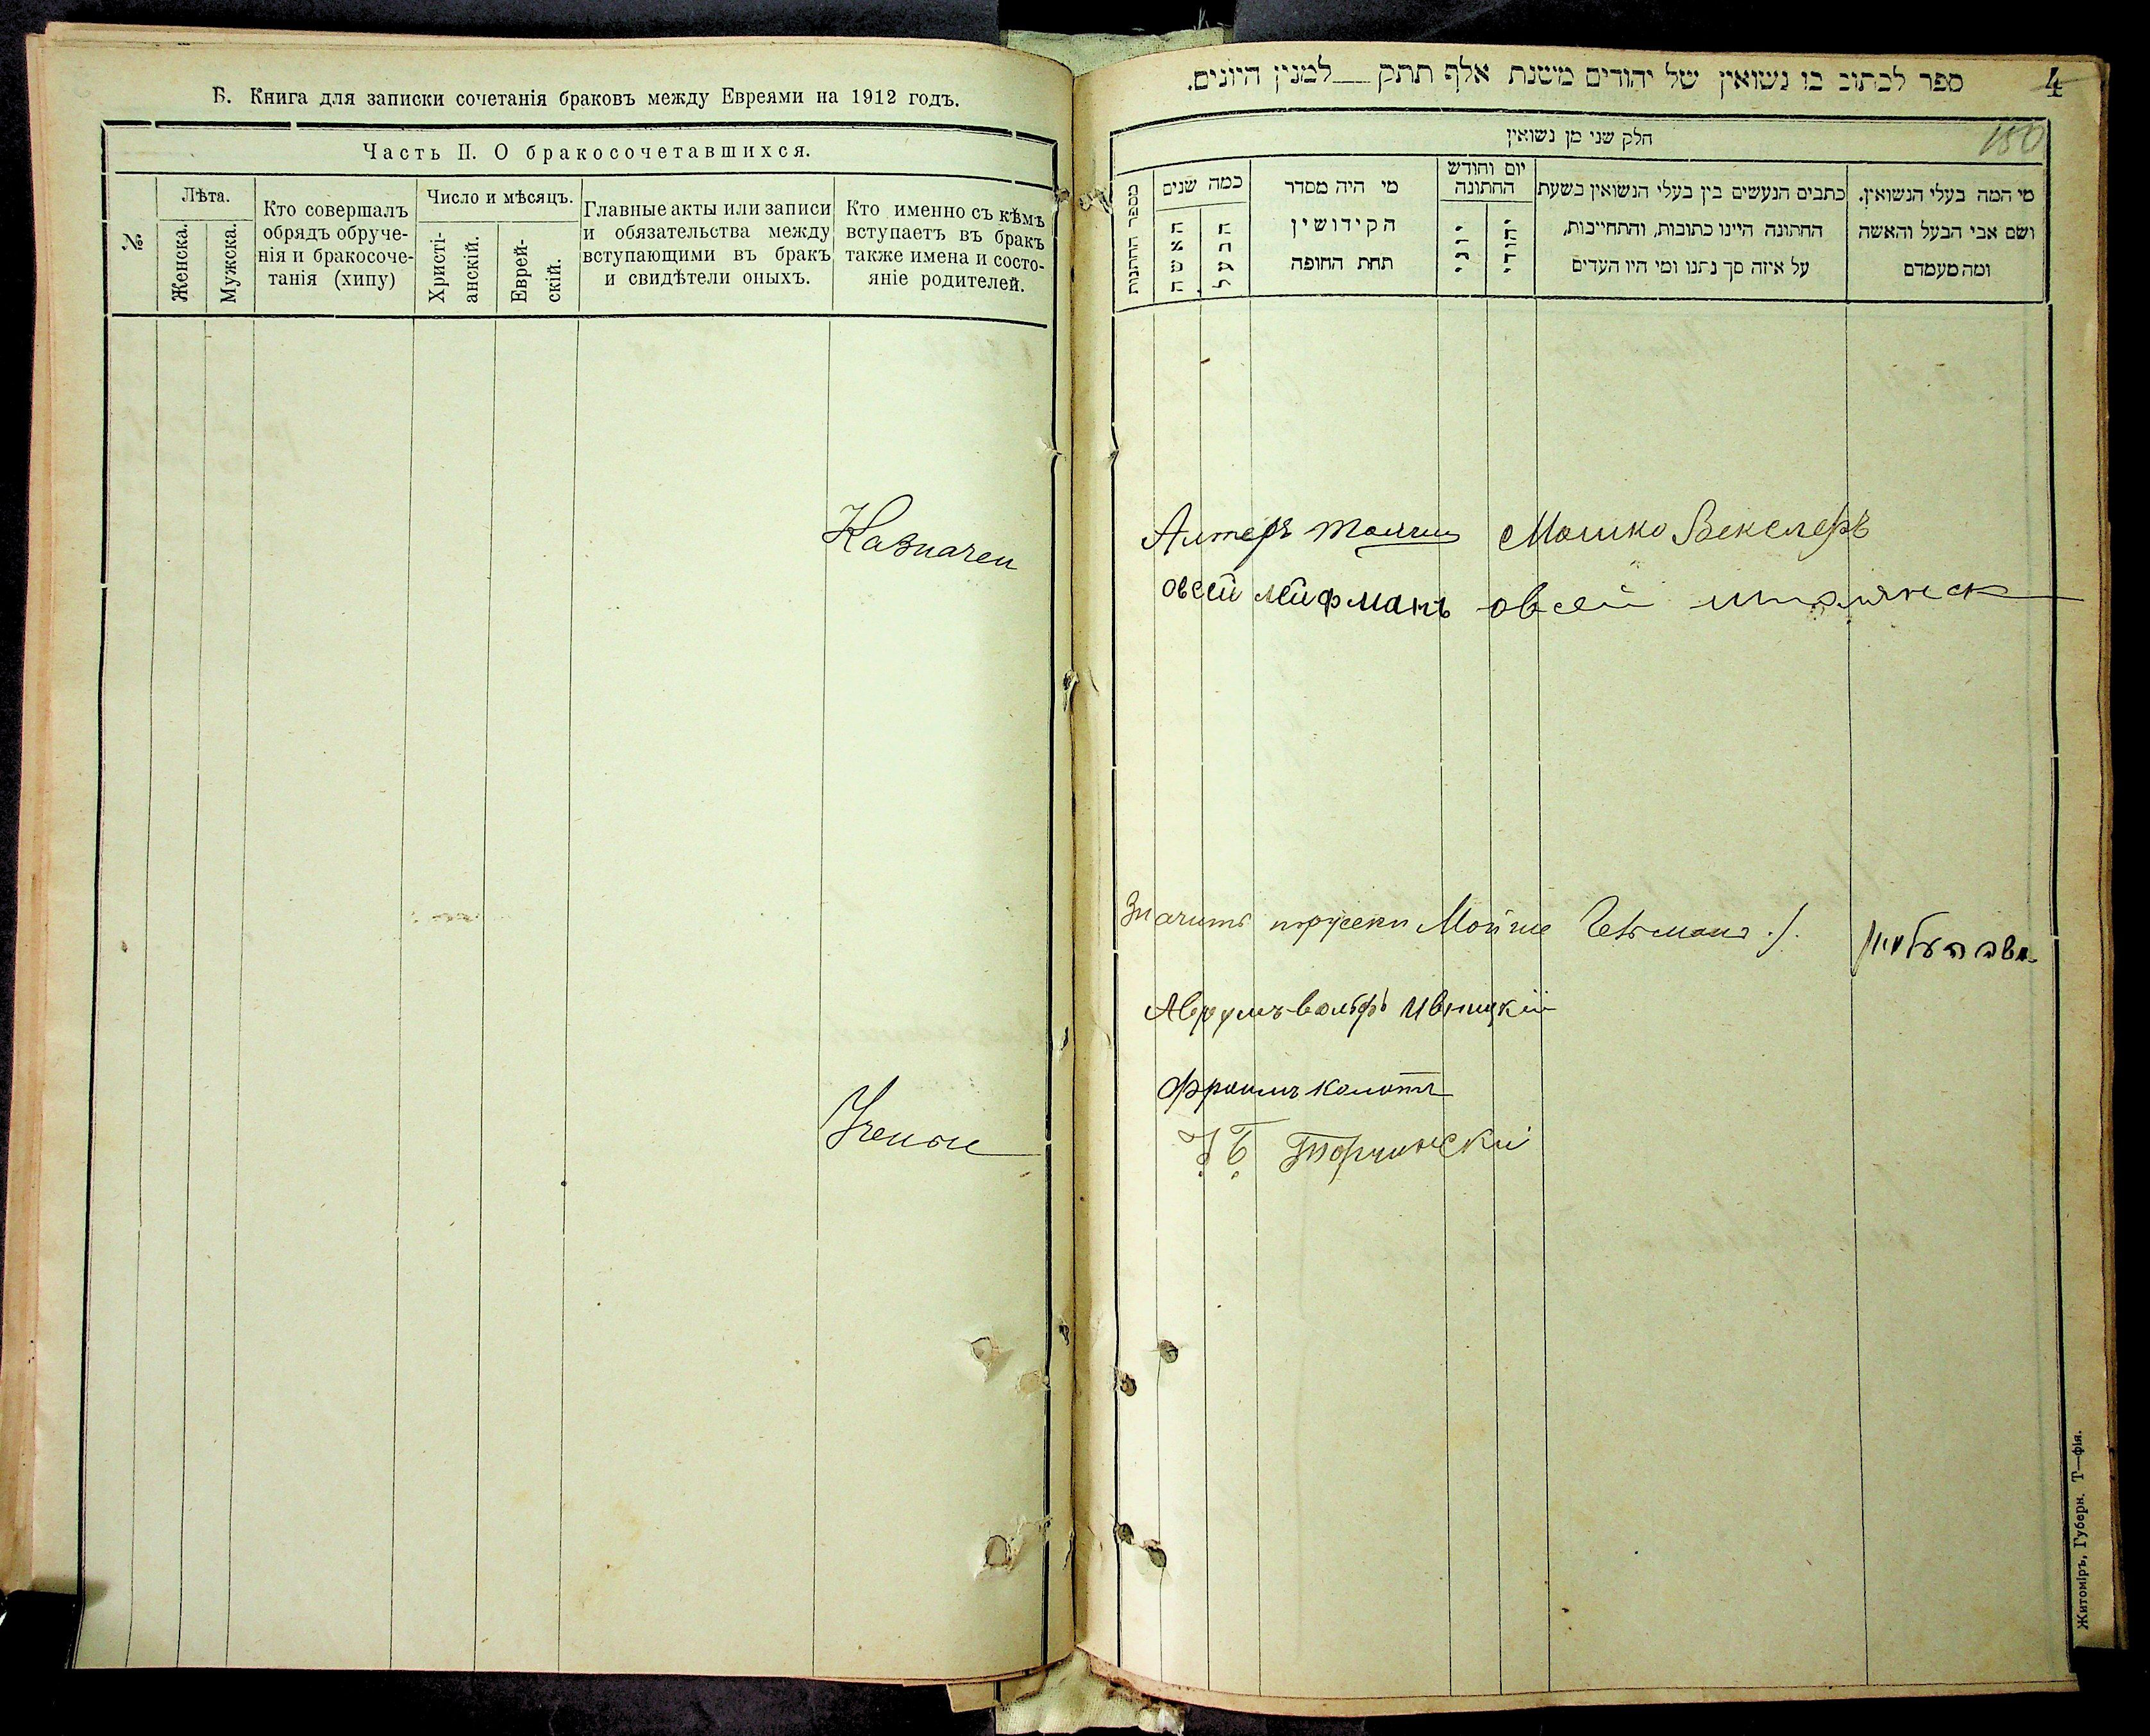 Б. Книга для записки сочетанія браковъ между Евреями на 1912 годъ.
Часть II. О бракосочетавшихся.
№
Лѣта.
Женска.
Мужска.
Кто совершалъ
обрядъ обруче-
нія и бракосоче-
танія (хипу)
Число и мѣсяцъ.
Христі-
анскій.
Еврей-
скій.
Главные акты или записи
и обязательства между
вступающими въ бракъ
и свидѣтели оныхъ.
Кто именно съ кѣмъ
вступаетъ въ бракъ
также имена и состо-
яніе родителей.
Казначеи
Ученые
4
ספר לכתוב בו נשואין של יהודים משנת אלף תתק — למנין היונים.
180
חלק שני מן נשואין
מספר החתנות
כמה שנים
האשה
הבעל
מי היה מסדר
הקידושין
תחת החופה
יום וחודש
החתונה
יוני
יהודי
כתבים הנעשים בין בעלי הנשואין בשעת
החתונה היינו כתובות, והתחייבות,
על איזה סך נתנו ומי היו העדים
מי המה בעלי הנשואין.
ושם אבי הבעל והאשה
ומה מעמדם
Алтеръ Мошко Векслеръ
овсей Лейфманъ овсей
Значитъ Мойше Гетманъ ./.
Аврумъ-вольфъ Ивницкій
Фроимъ
Торчинскій
Житоміръ, Губерн. Т—фія.